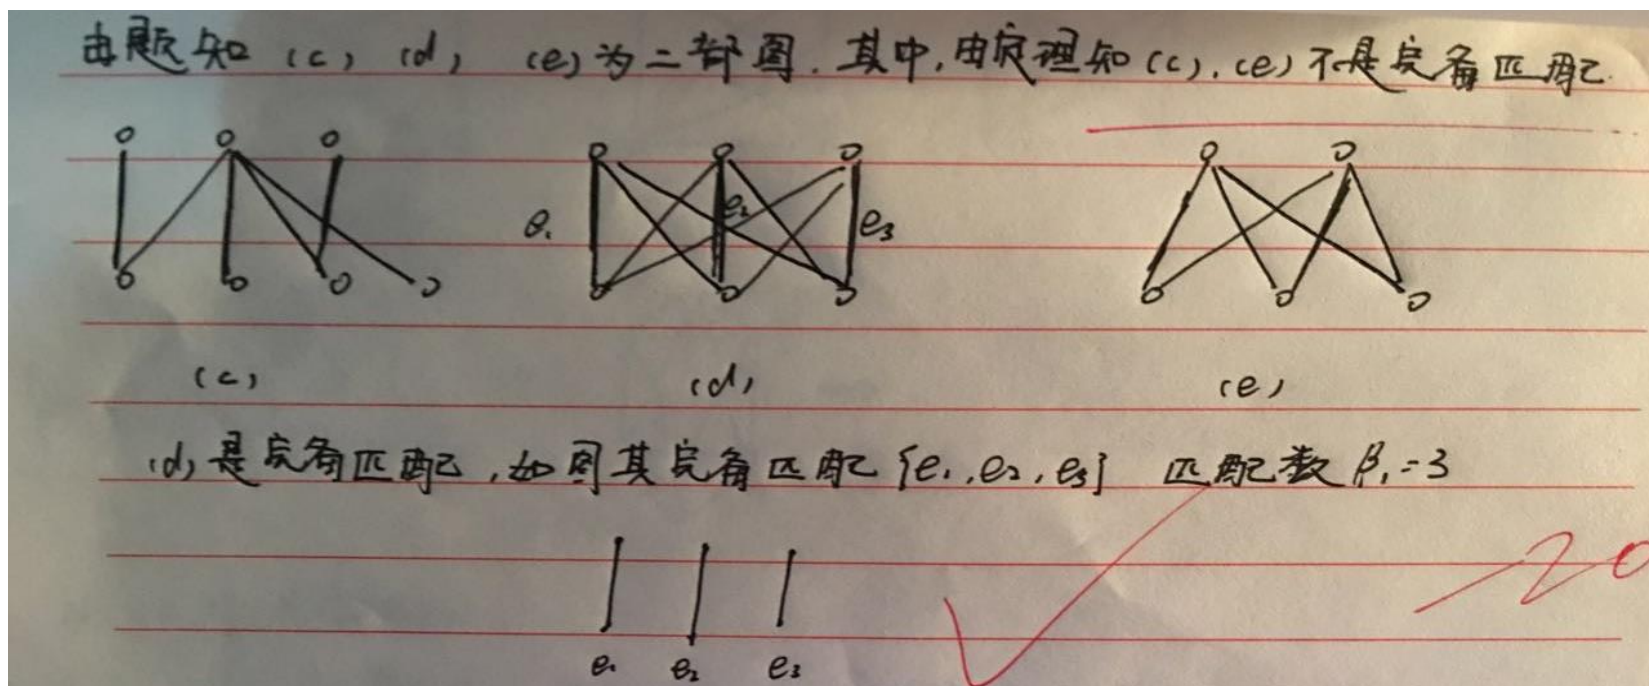 由题知 (c), (d), (e)为二部图.其中,由定理知(c),(e)不是完备匹配.
e₁ e₂ e₃
(c) (d) (e)
(d)是完备匹配,如图其完备匹配{e₁,e₂,e₃} 匹配数β₁=3
e₁ e₂ e₃
-20